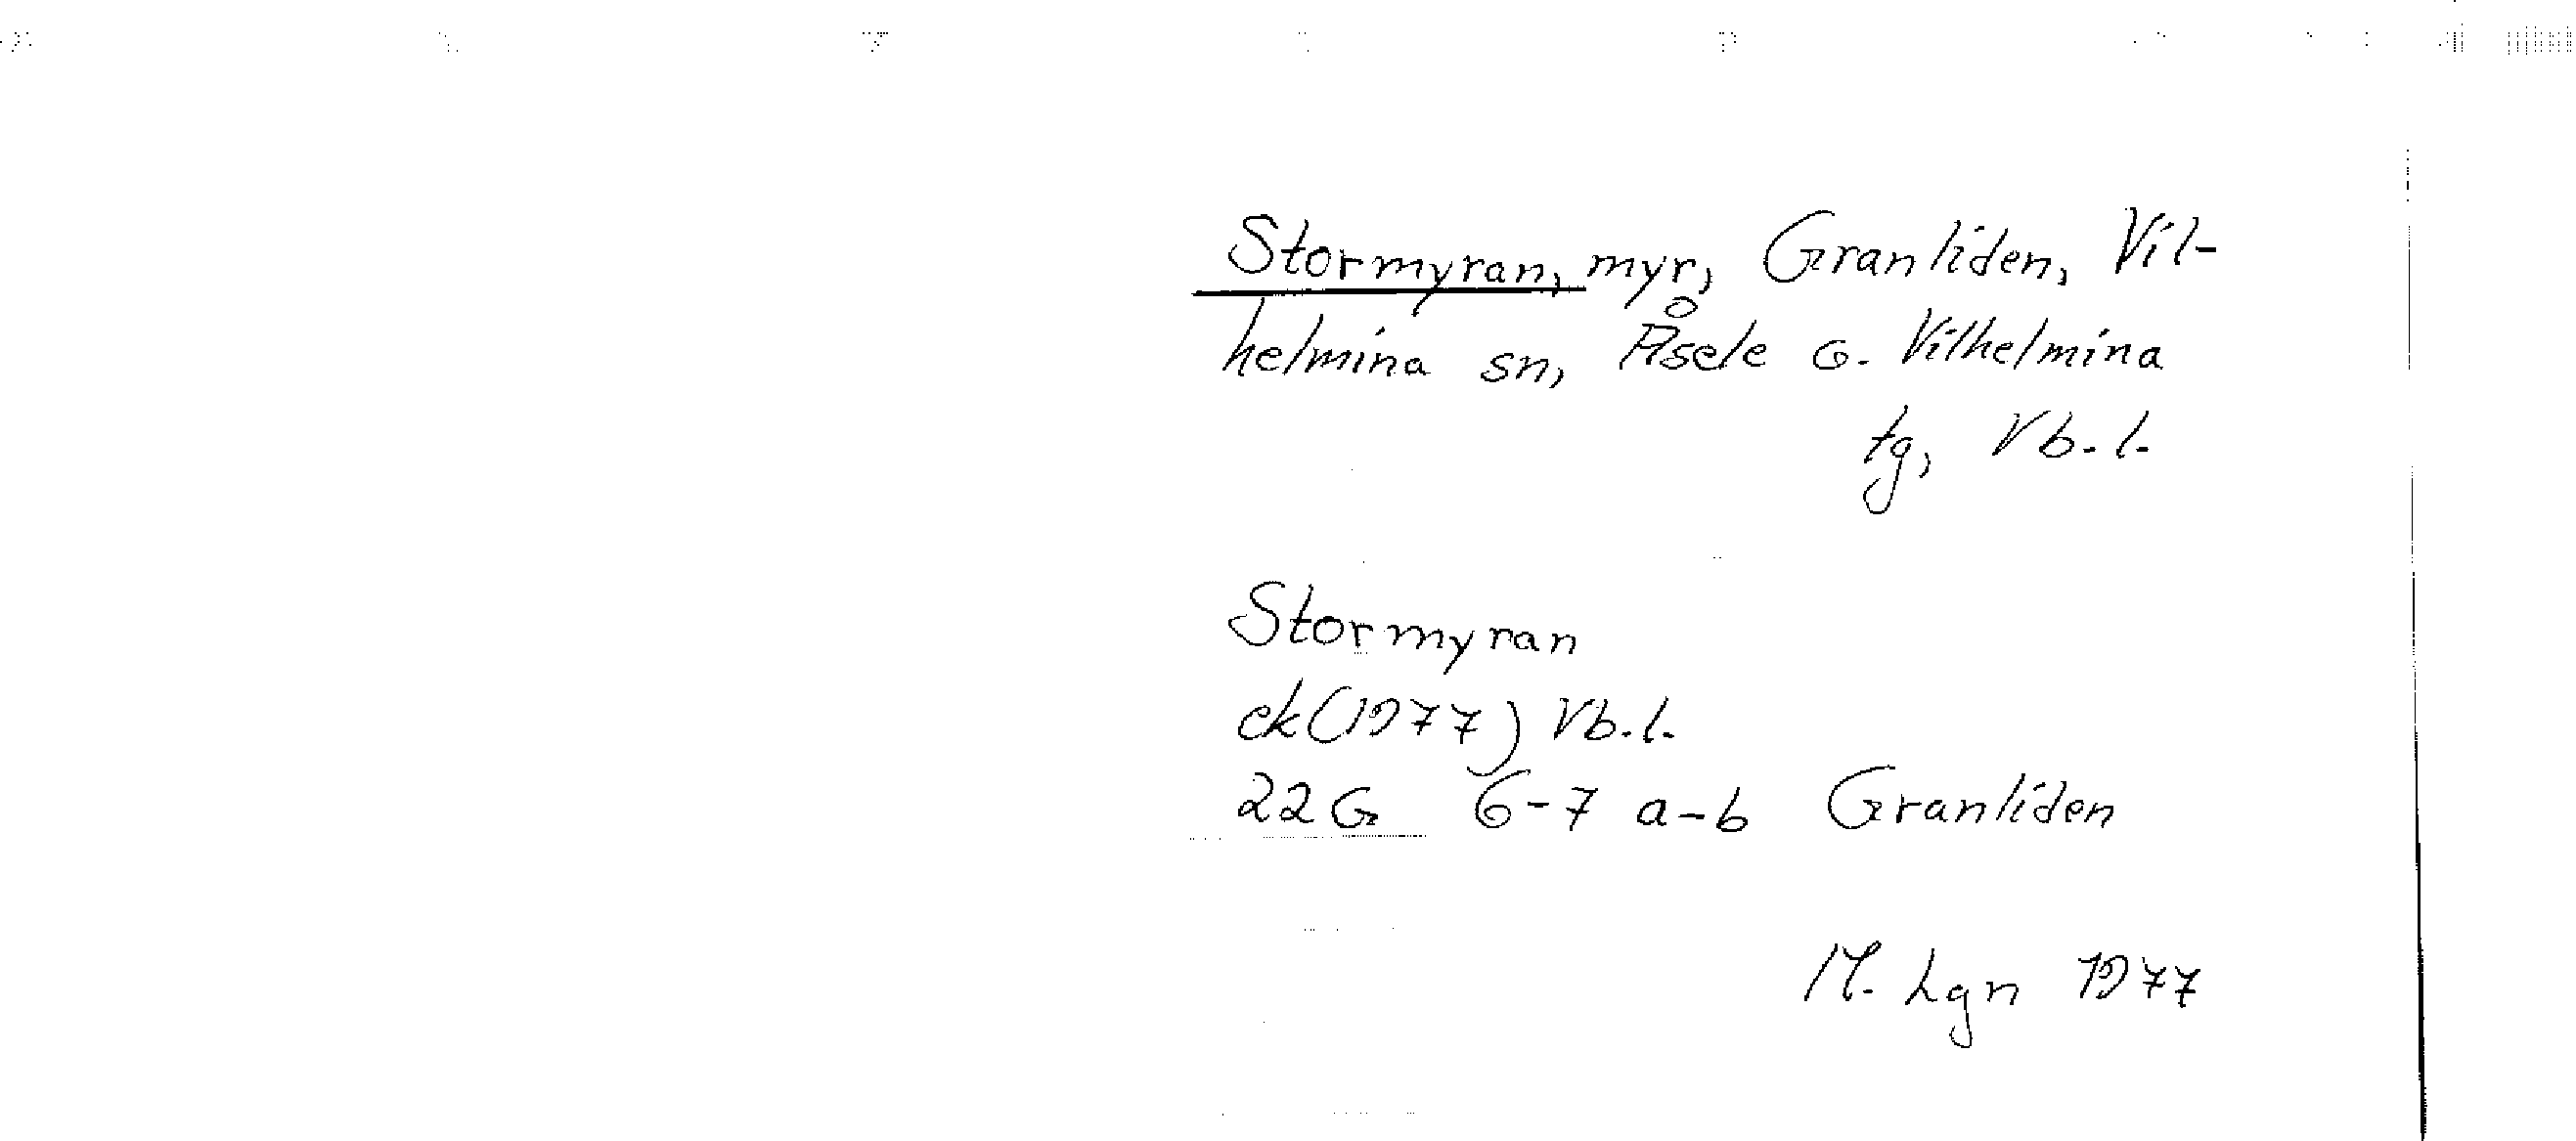 Stormyran, myr, Granliden, Vil-
helmina sn, Åsele o. Vilhelmina
tg, Vb.l.
Stormyran
ek (1977) Vb.l.
22G 6-7 a-b Granliden
M. Lgn 1977